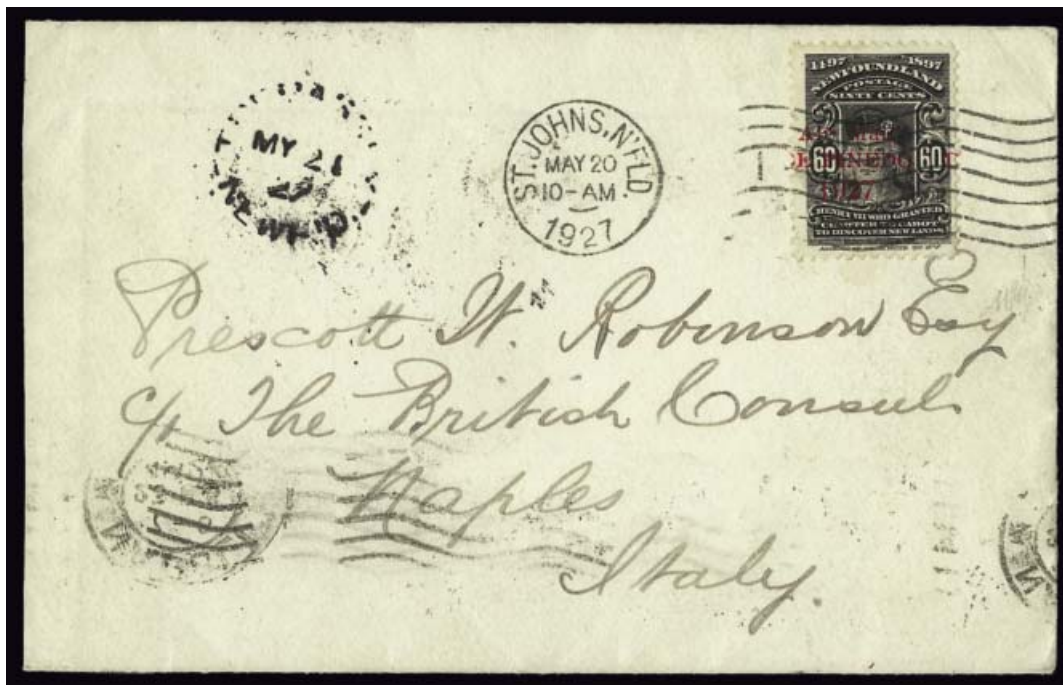 MY 21
27
NEWF'D
ST. JOHNS, N'FLD.
MAY 20
10-AM
1927
1497 1897
NEWFOUNDLAND
POSTAGE
SIXTY CENTS
60 60
1927
HENRY VII WHO GRANTED
CHARTER TO CABOT
TO DISCOVER NEW LANDS
Prescott W. Robinson Esq
c/o The British Consul
Naples
Italy.